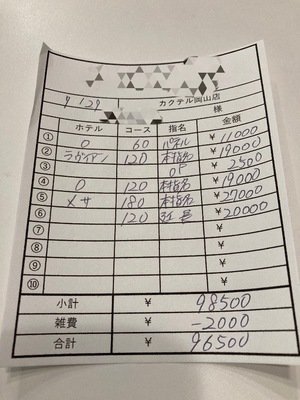 9/29 カクテル岡山店
様
ホテル コース 指名 金額
① O 60 パネル ¥11000
② ラヴィアン 120 本指名 ¥19000
③ OP ¥2500
④ O 120 本指名 ¥19000
⑤ メサ 180 本指名 ¥27000
⑥ 120 ¥20000
⑦ ¥
⑧ ¥
⑨ ¥
⑩ ¥
小計 ¥ 98500
雑費 ¥ -2000
合計 ¥ 96500